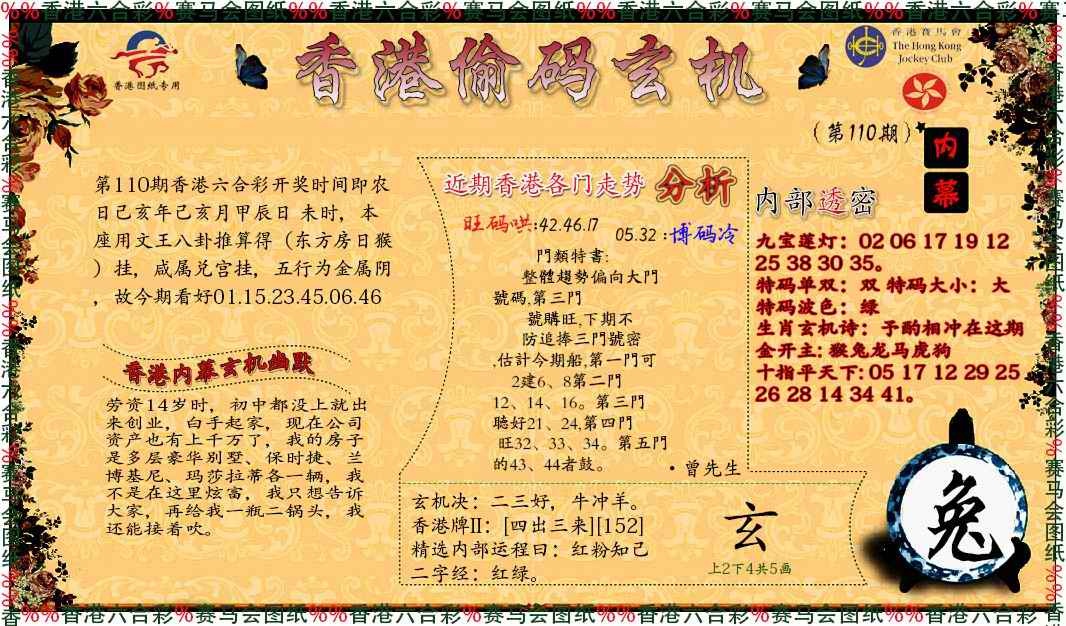 %%香港六合彩%赛马会图纸%%香港六合彩%赛马会图纸%%香港六合彩%赛马会图纸%%香港六合彩%赛
香港图纸专用
香港偷码玄机
香港賽馬會
The Hong Kong
Jockey Club
(第110期)
内
幕
第110期香港六合彩开奖时间即农
日己亥年己亥月甲辰日 未时，本
座用文王八卦推算得（东方房日猴
）挂，咸属兑宫挂，五行为金属阴
，故今期看好01.15.23.45.06.46
香港内幕玄机幽默
劳资14岁时，初中都没上就出
来创业，白手起家，现在公司
资产也有上千万了，我的房子
是多层豪华别墅、保时捷、兰
博基尼、玛莎拉蒂各一辆，我
不是在这里炫富，我只想告诉
大家，再给我一瓶二锅头，我
还能接着吹。
近期香港各门走势 分析
旺码哄:42.46.17
05.32 :博码冷
門類特書:
整體趨勢偏向大門
號碼,第三門
號購旺,下期不
防追捧三門號密
,估計今期船,第一門可
2建6、8第二門
12、14、16。第三門
聽好21、24,第四門
旺32、33、34。第五門
的43、44者鼓。
·曾先生
玄机决：二三好，牛冲羊。
香港牌II：[四出三来][152]
精选内部运程曰：红粉知己
二字经：红绿。
玄
上2下4共5画
内部透密
九宝莲灯：02 06 17 19 12
25 38 30 35。
特码单双：双 特码大小：大
特码波色：绿
生肖玄机诗：予酌相冲在这期
金开主:猴兔龙马虎狗
十指平天下:05 17 12 29 25
26 28 14 34 41。
兔
香%%香港六合彩%赛马会图纸%%香港六合彩%赛马会图纸%%香港六合彩%赛马会图纸%%香港六合彩%